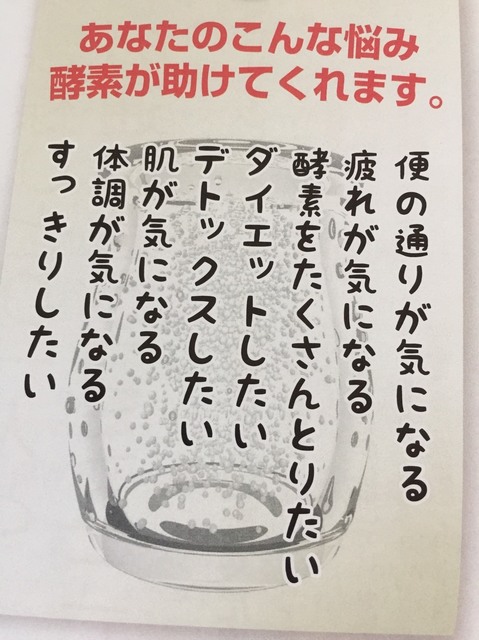 あなたのこんな悩み
酵素が助けてくれます。
便の通りが気になる
疲れが気になる
酵素をたくさんとりたい
ダイエットしたい
デトックスしたい
肌が気になる
体調が気になる
すっきりしたい